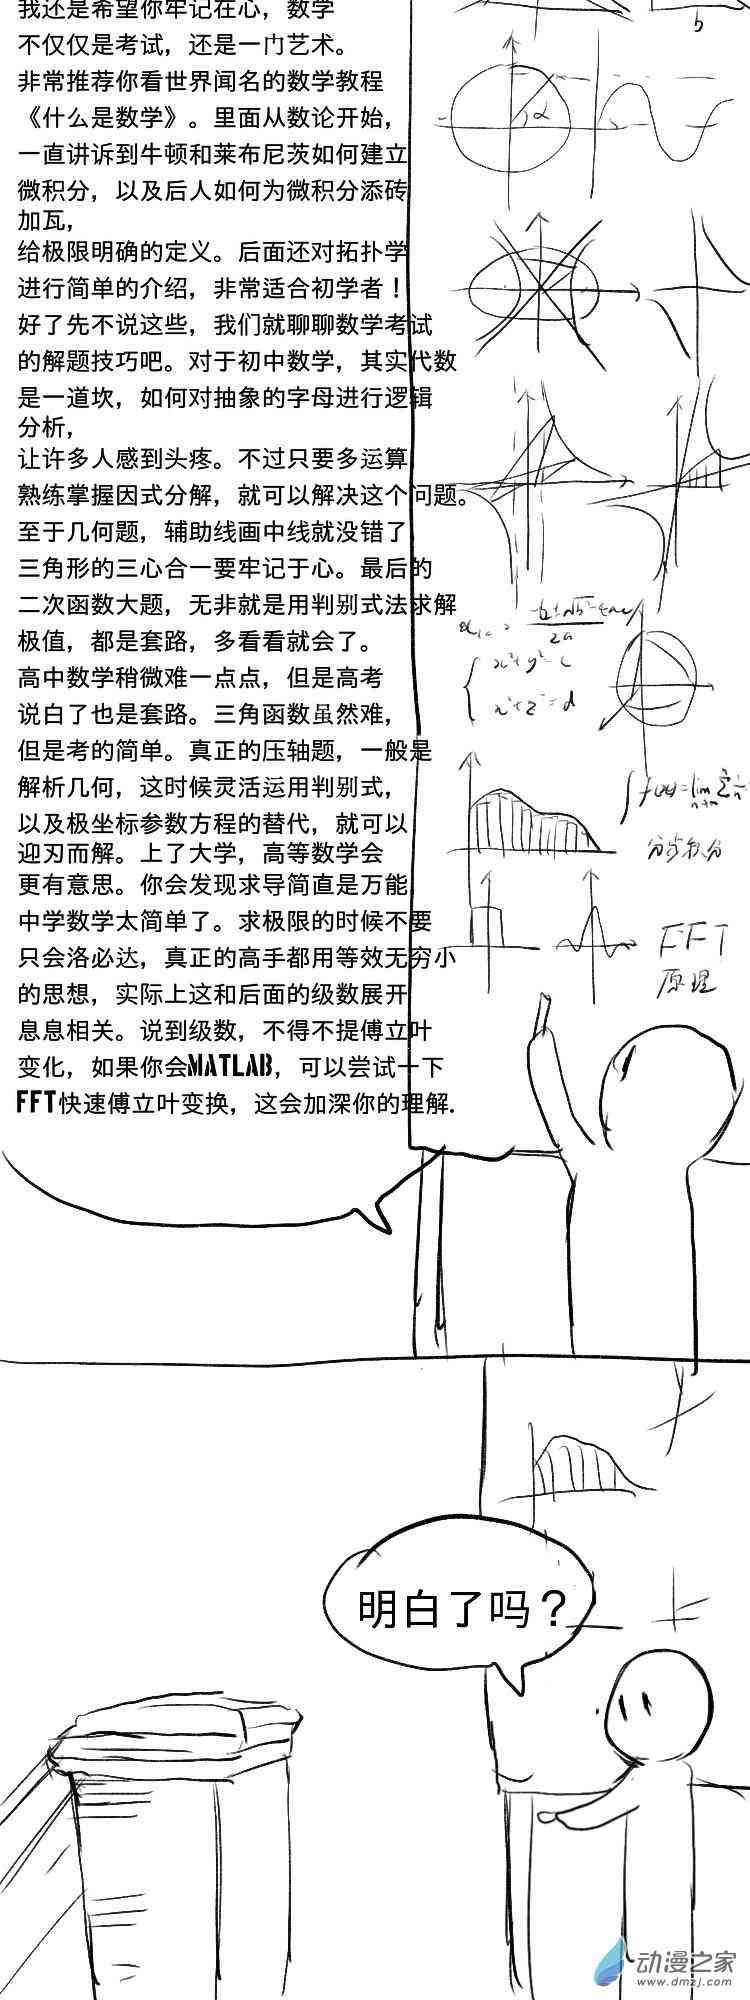 我还是希望你牢记在心，数学
不仅仅是考试，还是一门艺术。
非常推荐你看世界闻名的数学教程
《什么是数学》。里面从数论开始，
一直讲诉到牛顿和莱布尼茨如何建立
微积分，以及后人如何为微积分添砖
加瓦，
给极限明确的定义。后面还对拓扑学
进行简单的介绍，非常适合初学者！
好了先不说这些，我们就聊聊数学考试
的解题技巧吧。对于初中数学，其实代数
是一道坎，如何对抽象的字母进行逻辑
分析，
让许多人感到头疼。不过只要多运算，
熟练掌握因式分解，就可以解决这个问题。
至于几何题，辅助线画中线就没错了，
三角形的三心合一要牢记于心。最后的
二次函数大题，无非就是用判别式法求解
极值，都是套路，多看看就会了。
高中数学稍微难一点点，但是高考
说白了也是套路。三角函数虽然难，
但是考的简单。真正的压轴题，一般是
解析几何，这时候灵活运用判别式，
以及极坐标参数方程的替代，就可以
迎刃而解。上了大学，高等数学会
更有意思。你会发现求导简直是万能，
中学数学太简单了。求极限的时候不要
只会洛必达，真正的高手都用等效无穷小
的思想，实际上这和后面的级数展开
息息相关。说到级数，不得不提傅立叶
变化，如果你会MATLAB，可以尝试一下
FFT快速傅立叶变换，这会加深你的理解.
b
α
x²+y²=c
x²+z²=d
分步积分
FFT
原理
明白了吗？
动漫之家
www.dmzj.com